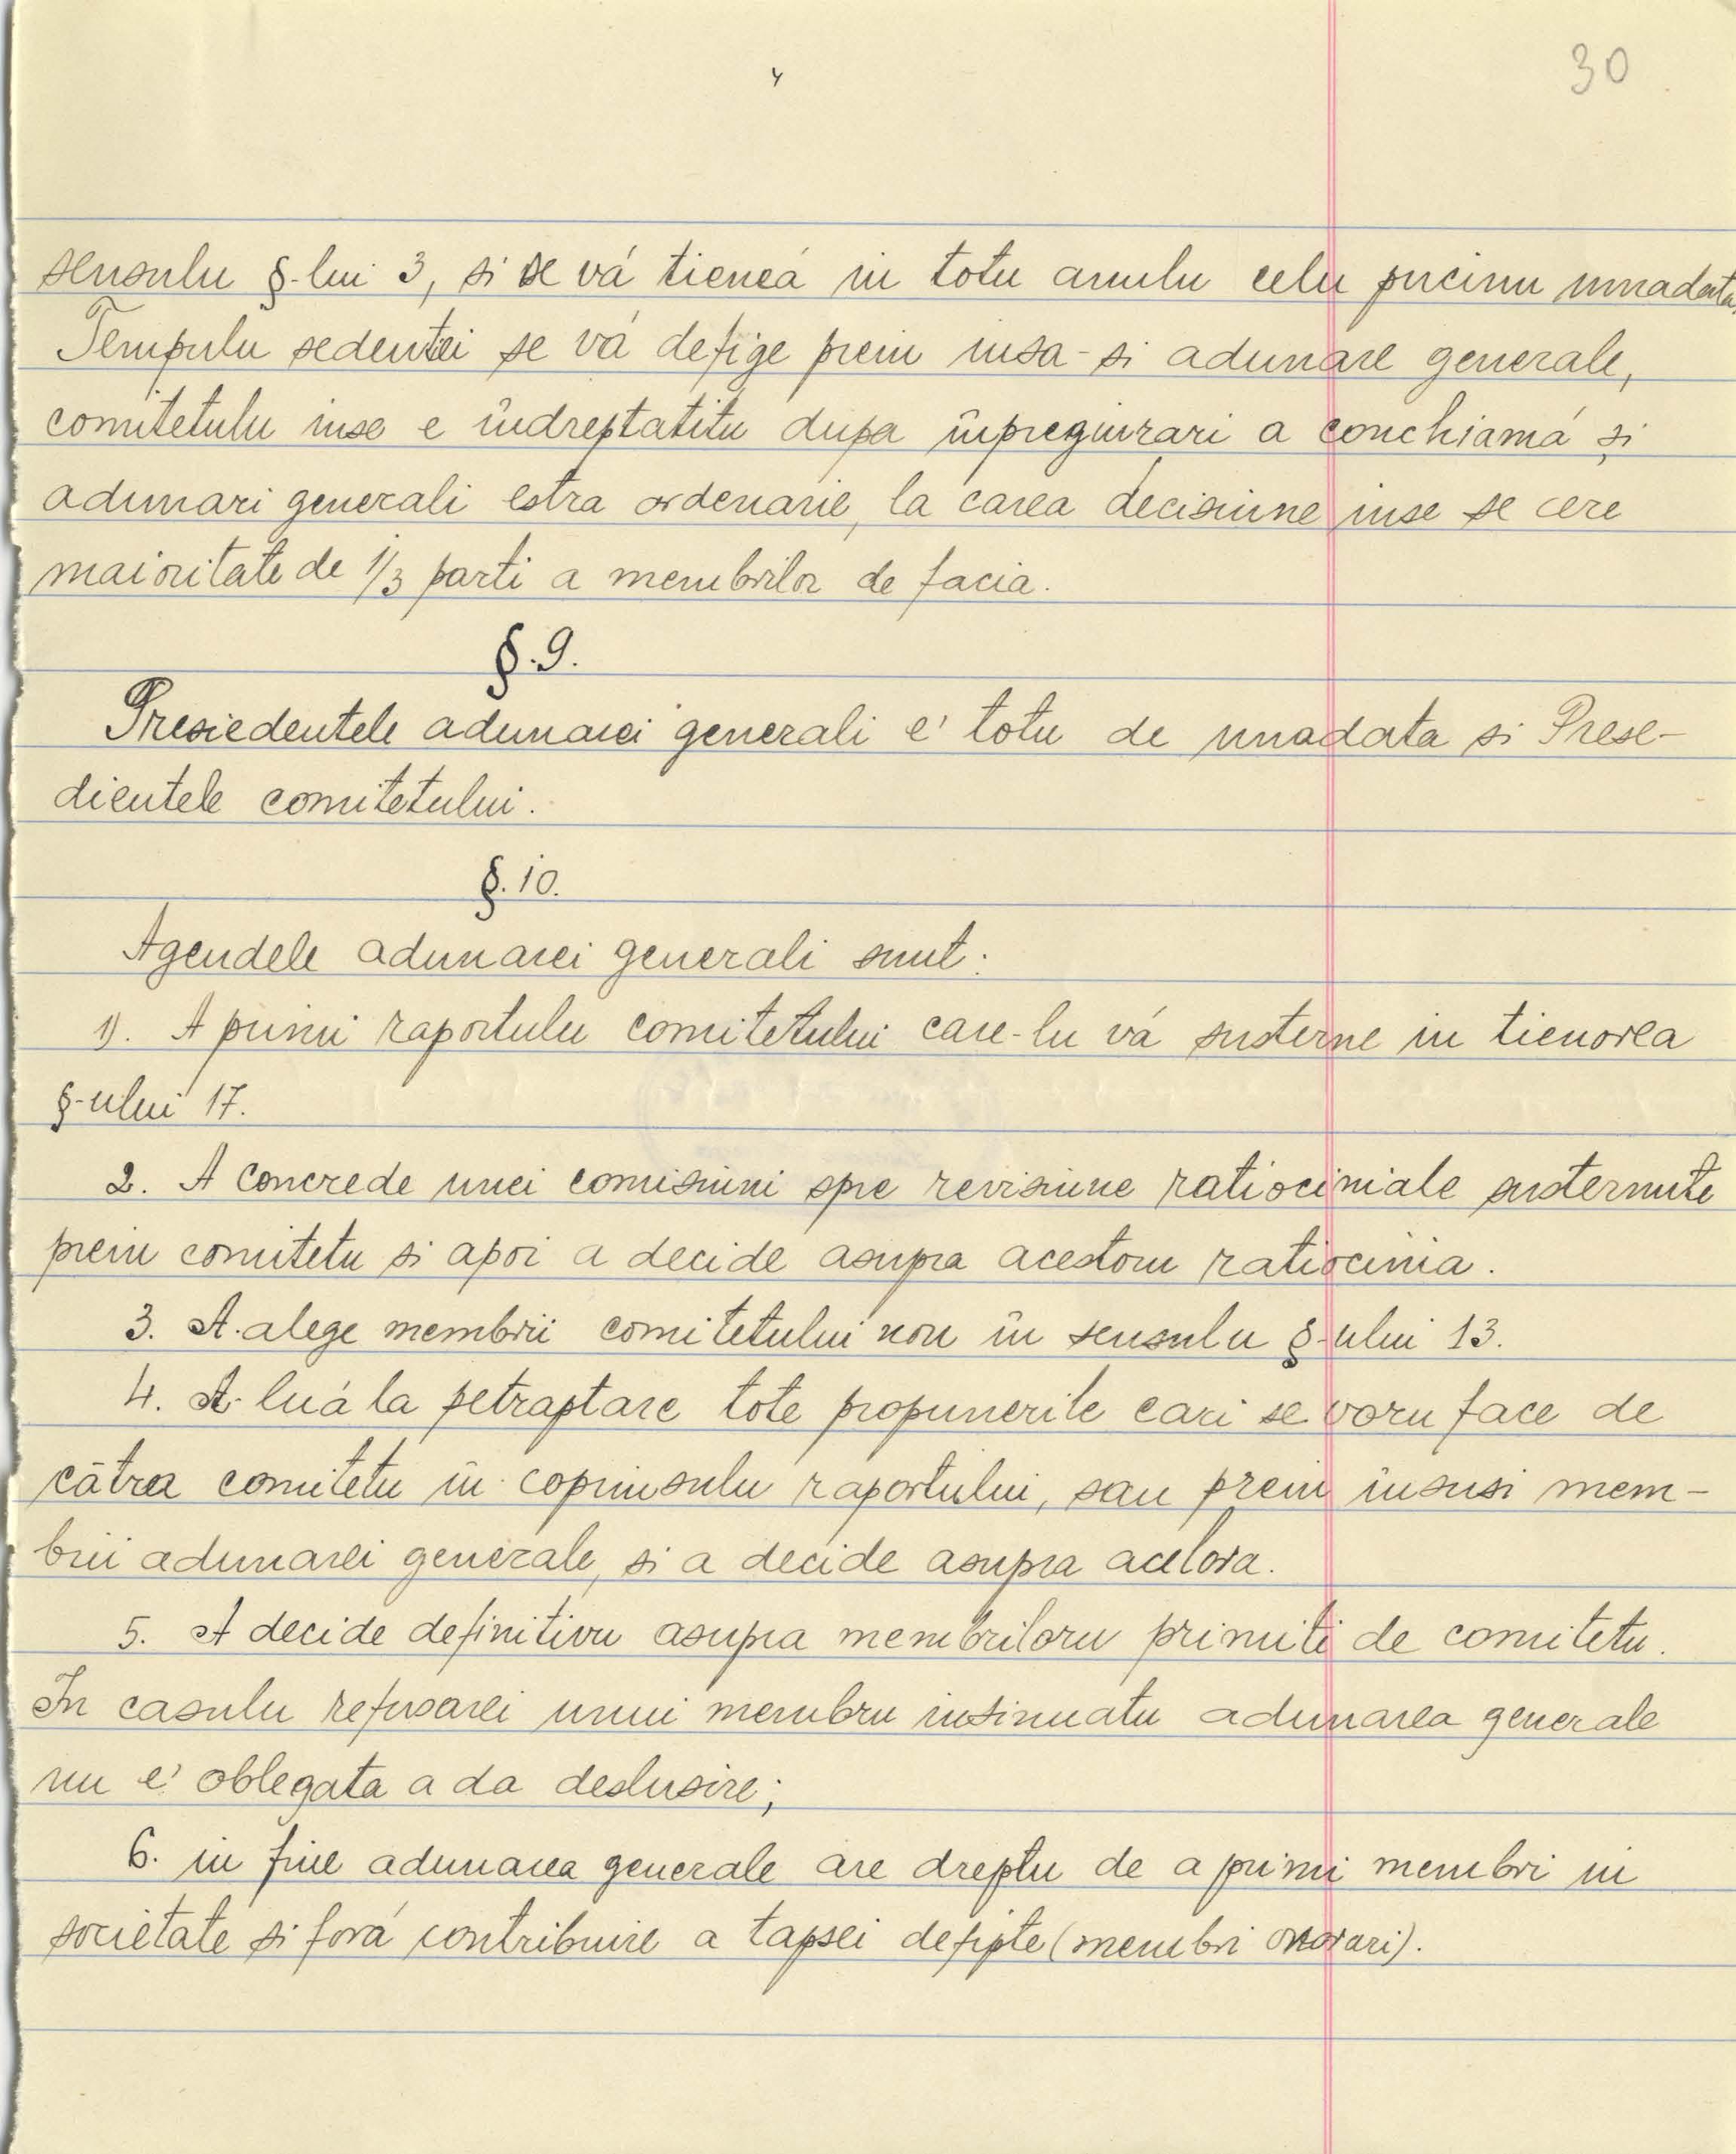 30
4
sensulu §-lui 3, si se vá tieneá in totu anulu celu pucinu unadata.
Tempulu sedentei se vá defige prein insa-si adunare generale,
comitetulu inse e îndreptatitu dupa împregiurari a conchiamá și
adunari generali estra ordenarie, la carea decisiune inse se cere
maioritate de 1/3 parti a membrilor de facia.
§. 9.
Presiedentele adunarei generali e' totu de unadata si Prese-
dientele comitetului.
§. 10.
Agendele adunarei generali sunt:
1). A primi raportulu comitetului care-lu vá susterne in tienorea
§-ului 17.
2. A concrede unei comisiuni spre revisiune ratiociniale susternute
prein comitetu si apoi a decide asupra acestoru ratiocinia.
3. A alege membrii comitetului nou în sensulu §-ului 13.
4. A luá la petraptare tote propunerile cari se voru face de
cātra comitetu în coprinsulu raportului, sau prein însusi mem-
brii adunarei generale, si a decide asupra acelora.
5. A decide definitivu asupra membriloru primiti de comitetu.
In casulu refusarei unui membru insinuatu adunarea generale
nu e' oblegata a da deslusire;
6. in fine adunarea generale are dreptu de a primi membri in
societate si forá contribuire a tapsei defipte (membri onorari).